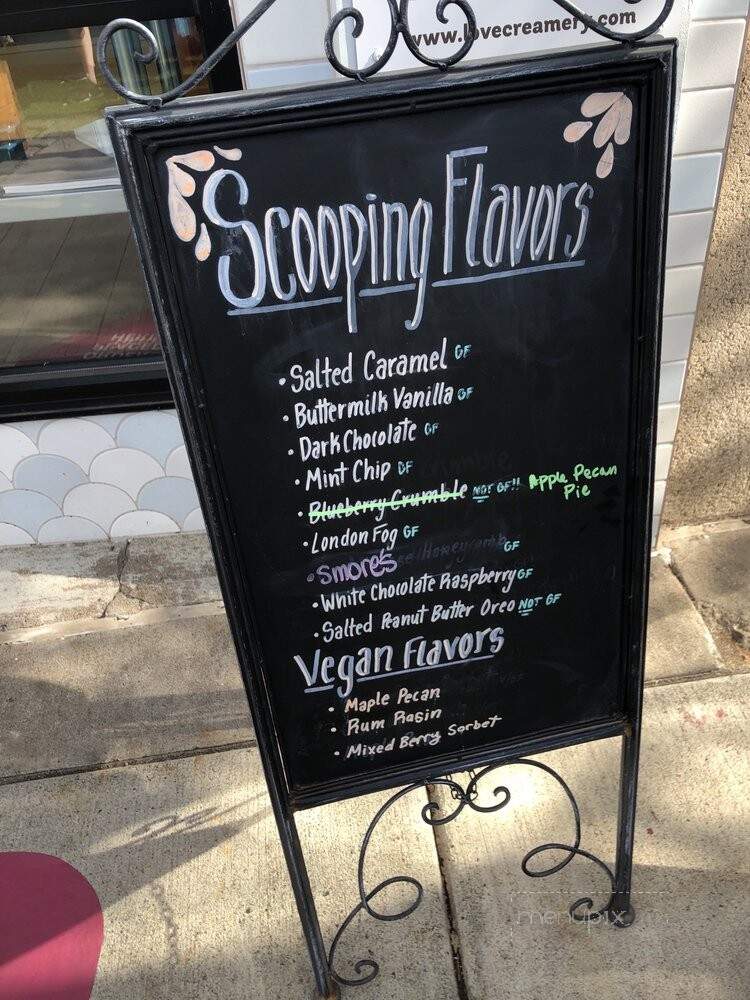 www.lovecreamery.com
Scooping Flavors
• Salted Caramel GF
• Buttermilk Vanilla GF
• Dark Chocolate GF
• Mint Chip GF
• Blueberry Crumble NOT GF!! Apple Pecan
Pie
• London Fog GF
• Smores GF
• White Chocolate Raspberry GF
• Salted Peanut Butter Oreo NOT GF
Vegan Flavors
• Maple Pecan
• Rum Rasin
• Mixed Berry Sorbet
menupix